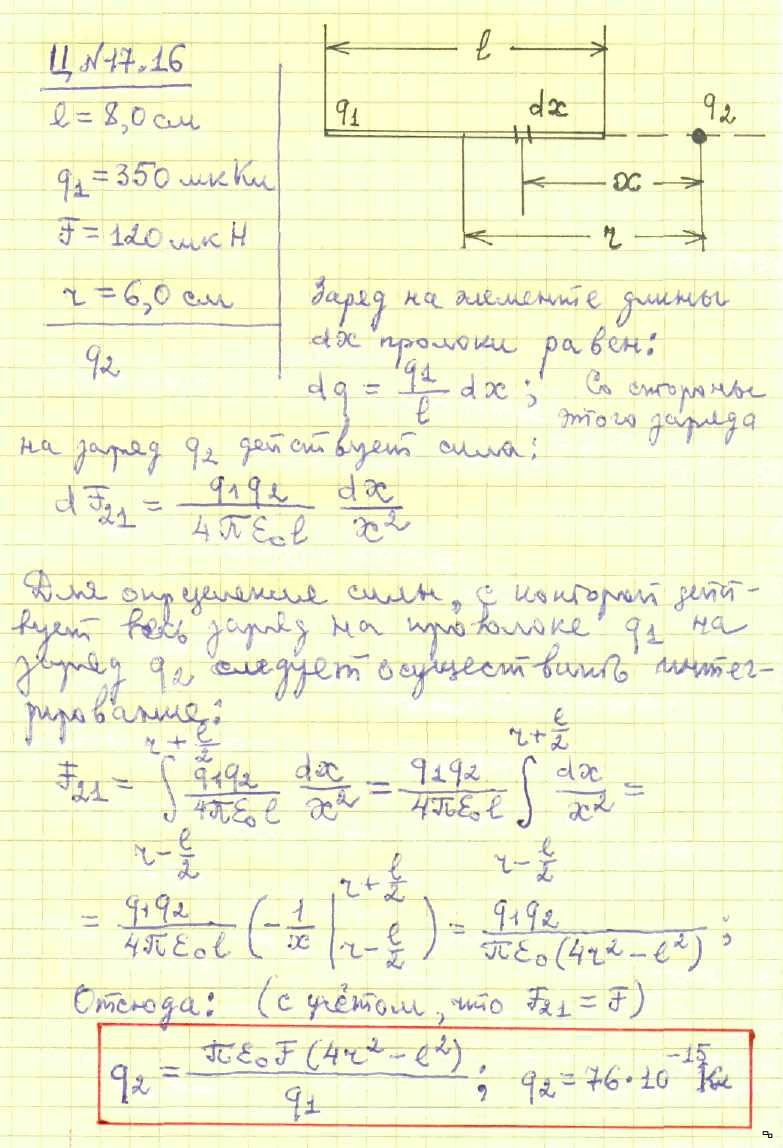 Ц №17.16
l = 8,0 см
q₁ = 350 мкКл
F = 120 мкН
r = 6,0 см
q₂
l
q₁ dx q₂
x
r
Заряд на элементе длины
dx проloки равен:
dq = q₁/l dx; Со стороны
этого заряда
на заряд q₂ действует сила:
dF₂₁ = q₁q₂/4πε₀l dx/x²
Для определения силы, с которой дейст-
вует весь заряд на проволоке q₁ на
заряд q₂ следует осуществить интег-
рирование:
F₂₁ = ∫_{r-l/2}^{r+l/2} q₁q₂/4πε₀l dx/x² = q₁q₂/4πε₀l ∫_{r-l/2}^{r+l/2} dx/x² =
= q₁q₂/4πε₀l (-1/x |_{r-l/2}^{r+l/2}) = q₁q₂/πε₀(4r²-l²);
Отсюда: (с учётом, что F₂₁ = F)
q₂ = πε₀F(4r²-l²)/q₁; q₂ = 76·10⁻¹⁵ Кл